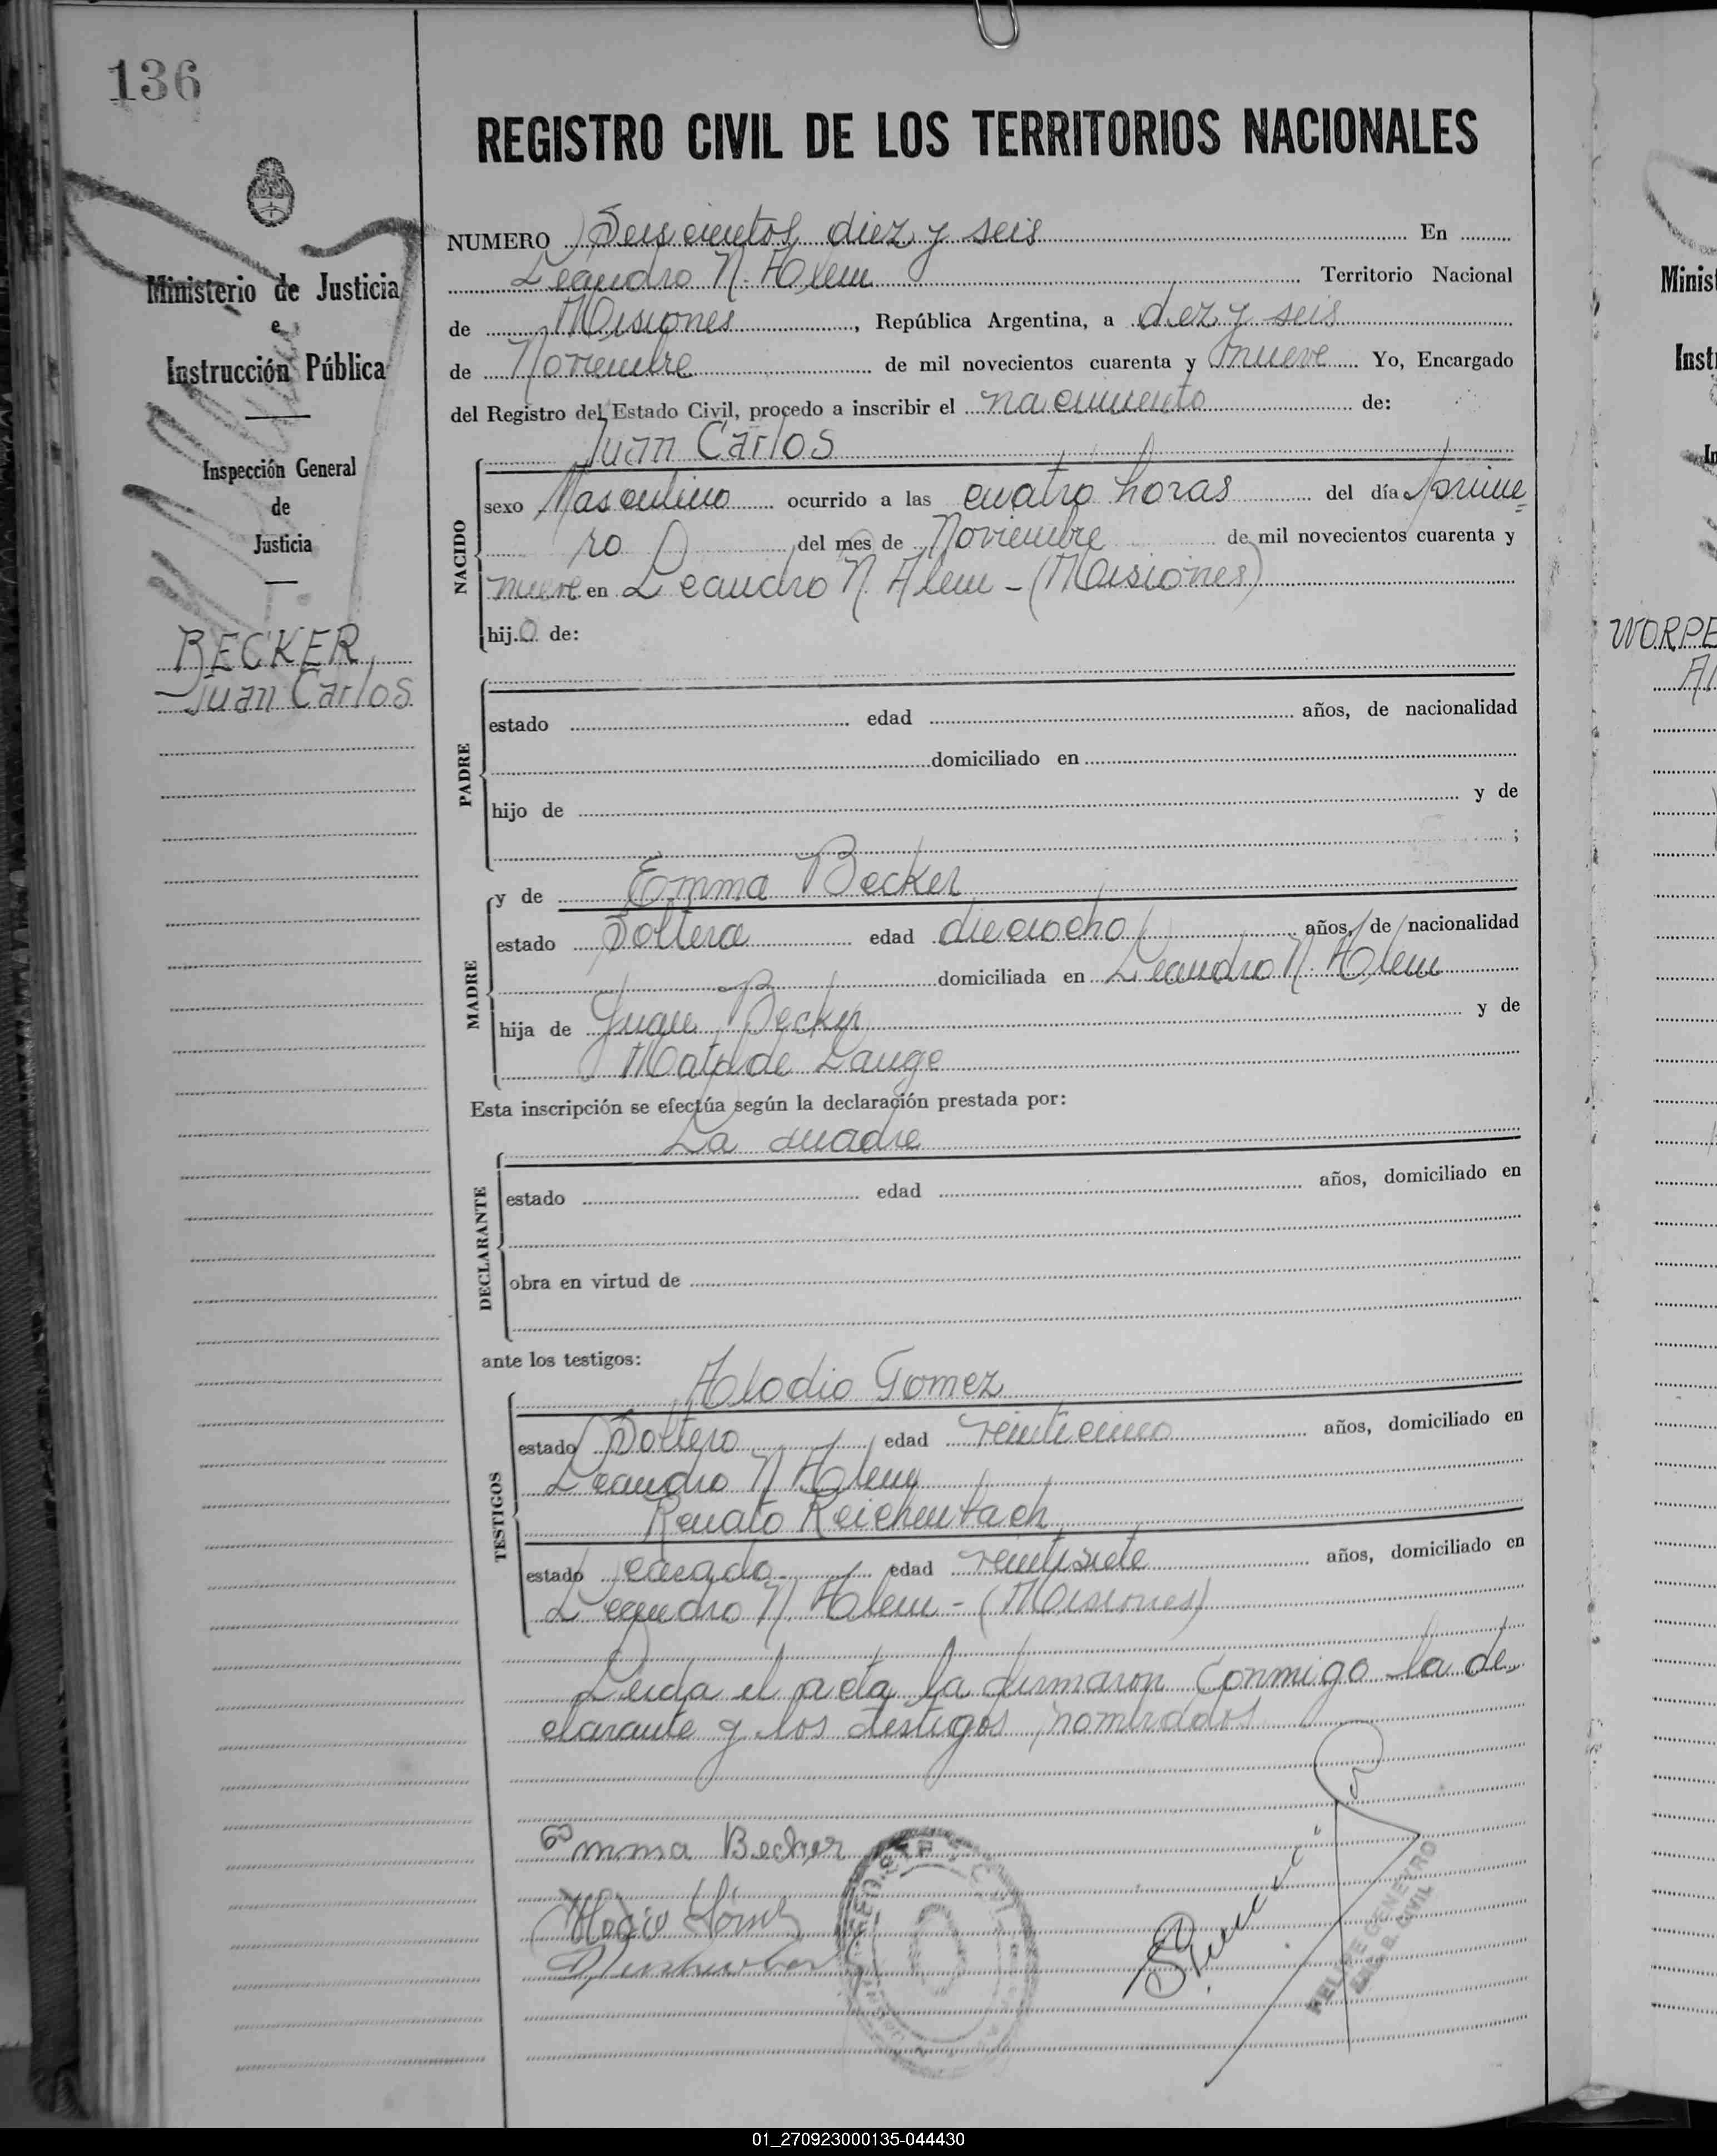 136
REGISTRO CIVIL DE LOS TERRITORIOS NACIONALES
NUMERO Seiscientos diez y seis En
Leandro N. Alem Territorio Nacional
de Misiones, República Argentina, a diez y seis
de Noviembre de mil novecientos cuarenta y nueve Yo, Encargado
del Registro del Estado Civil, procedo a inscribir el nacimiento de:
Juan Carlos
NACIDO
sexo Masculino ocurrido a las cuatro horas del día prime
ro del mes de Noviembre de mil novecientos cuarenta y
nueve en Leandro N. Alem - (Misiones)
hijo de:
PADRE
estado edad años, de nacionalidad
domiciliado en
hijo de y de
;
MADRE
y de Emma Becker
estado Soltera edad dieciocho años, de nacionalidad
domiciliada en Leandro N. Alem
hija de Juan Becker y de
Lange
Esta inscripción se efectúa según la declaración prestada por:
La madre
DECLARANTE
estado edad años, domiciliado en
obra en virtud de
ante los testigos:
Alodio Gomez
TESTIGOS
estado Soltero edad veinticinco años, domiciliado en
Leandro N Alem
Renato Reichenbach
estado casado edad veintisiete años, domiciliado en
Leandro N. Alem - (Misiones)
Leida el acta la firmaron conmigo la de
clarante y los testigos nombrados
Emma Becker
FELIPE GENEYRO
ENC. R. CIVIL
Ministerio de Justicia
e
Instrucción Pública
Inspección General
de
Justicia
BECKER
Juan Carlos
Minist
Inst
In
WORPE
01_270923000135-044430